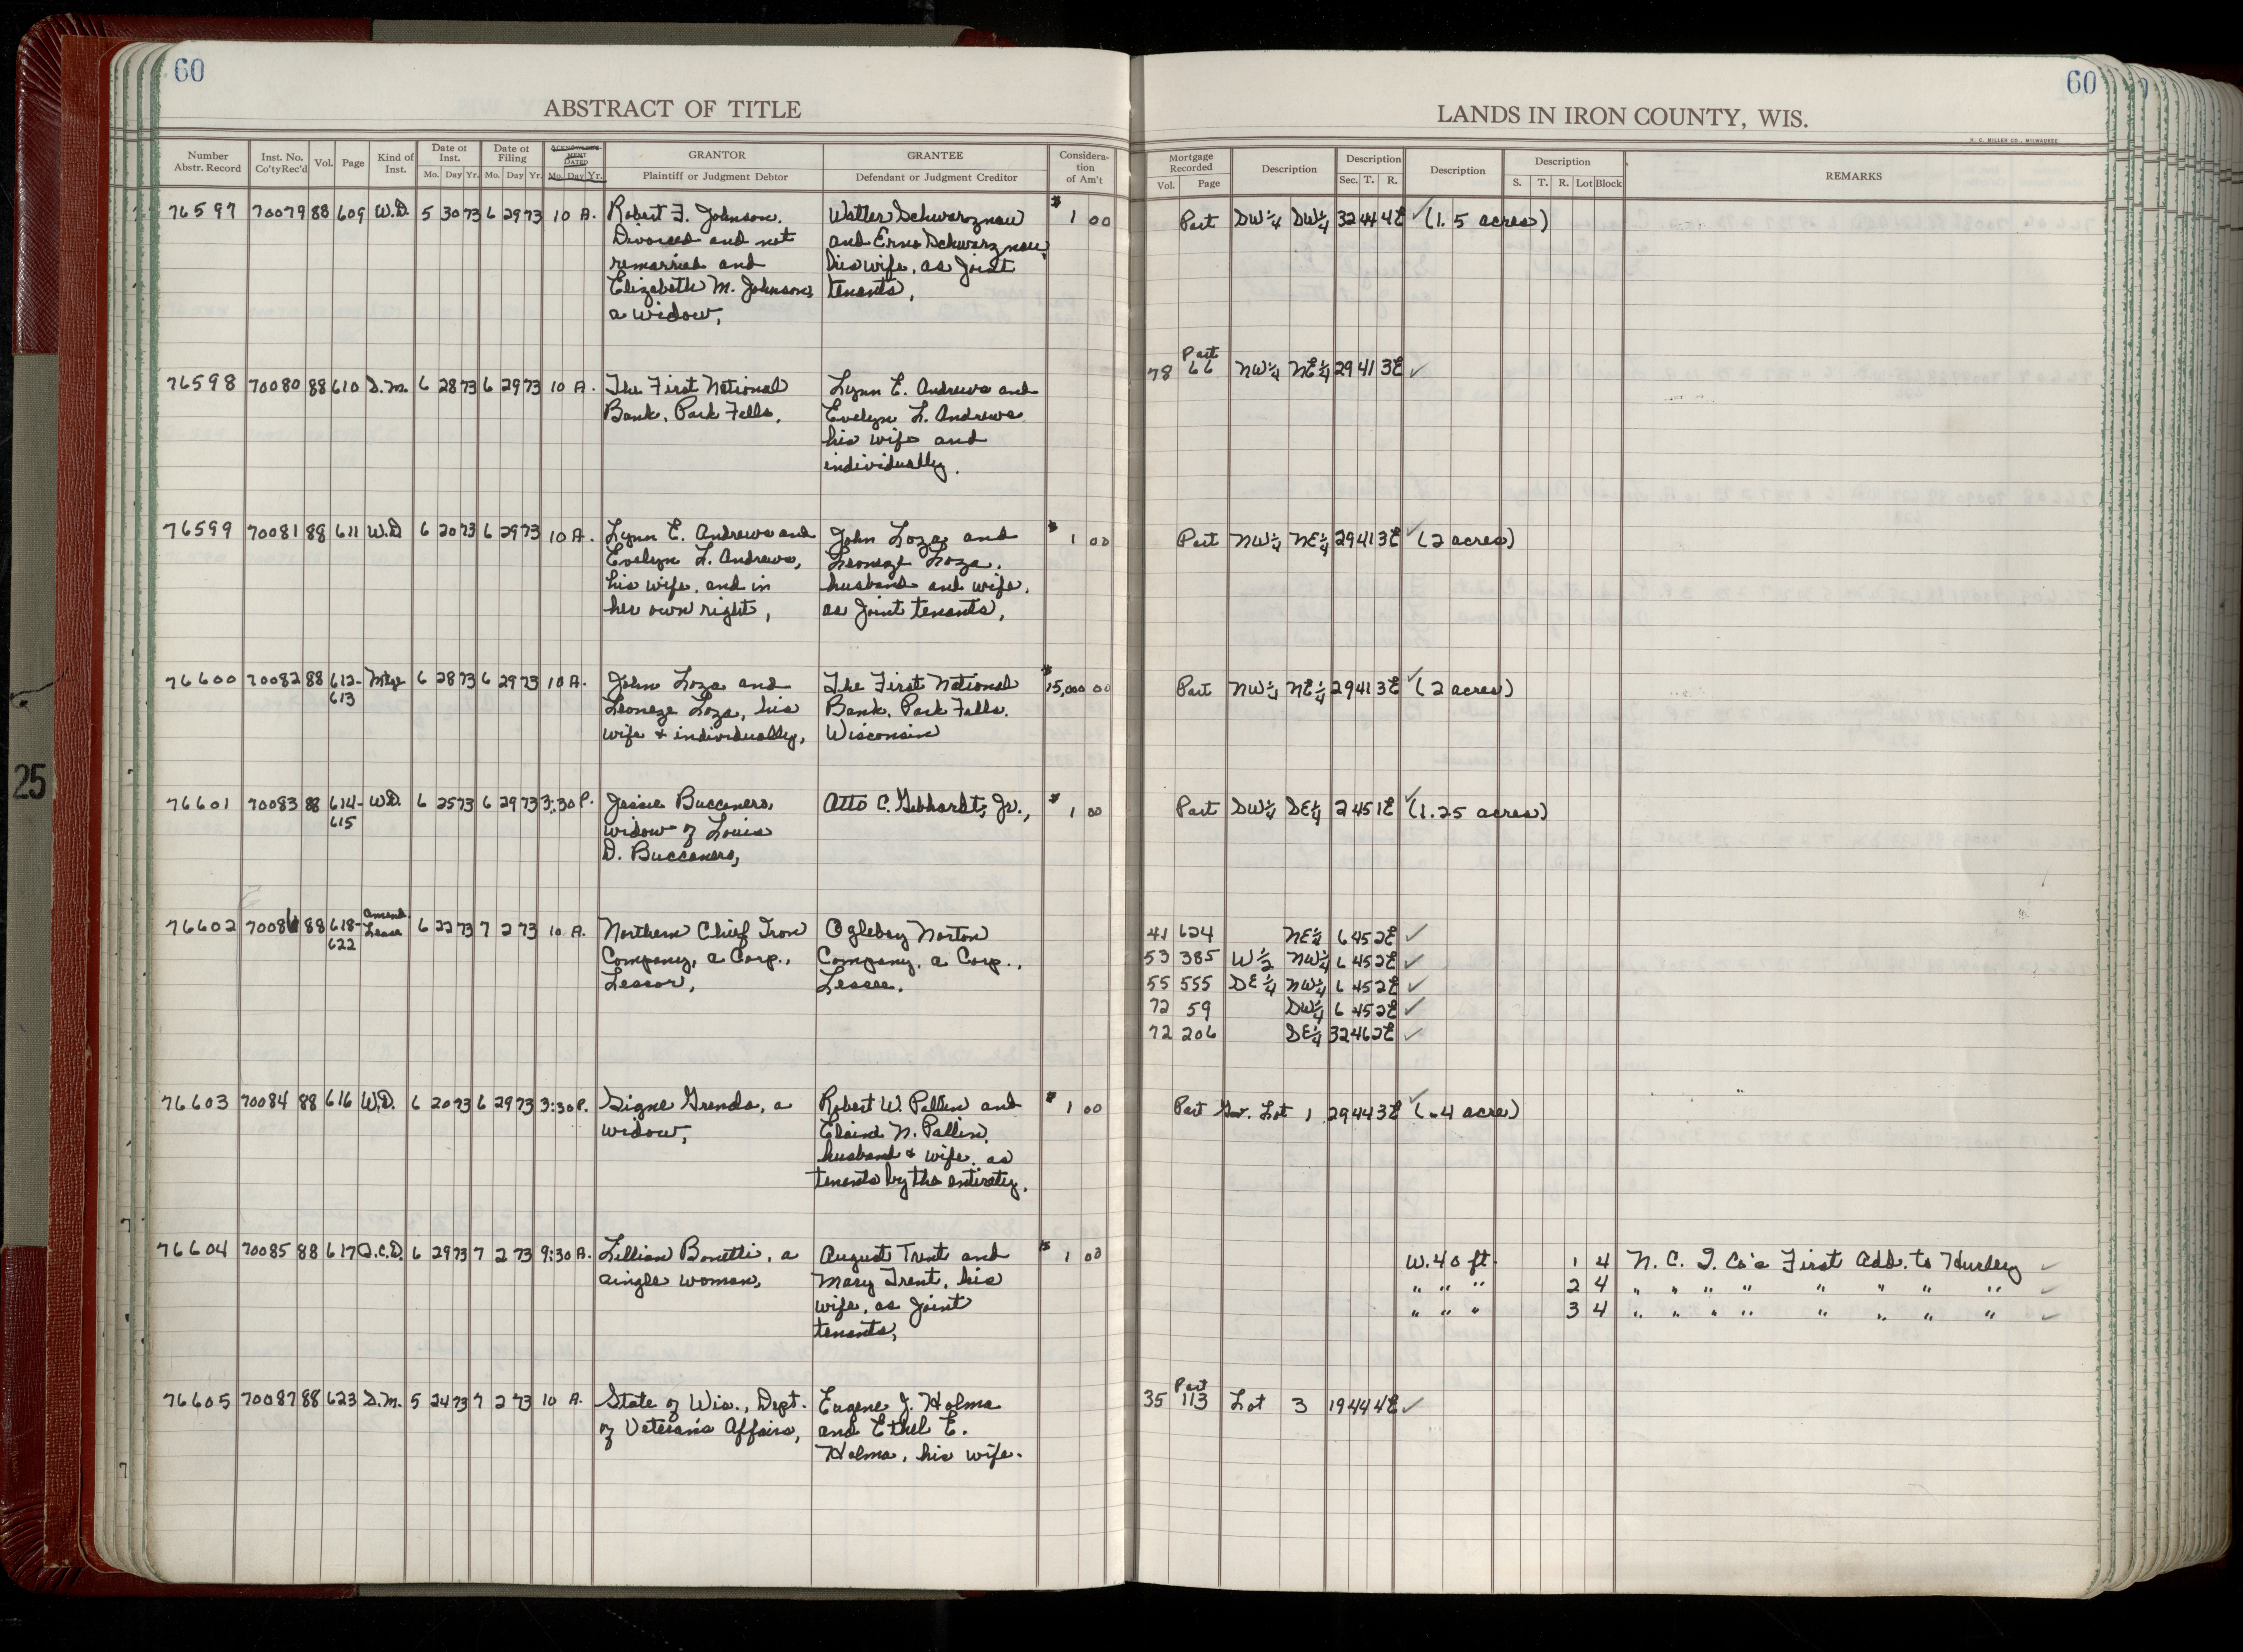 60
ABSTRACT OF TITLE
Number Abstr. Record | Inst. No. Co'ty Rec'd | Vol. | Page | Kind of Inst. | Date of Inst. Mo. Day Yr. | Date of Filing Mo. Day Yr. | ACKNOWLEDGMENT DATED Mo. Day Yr. | GRANTOR Plaintiff or Judgment Debtor | GRANTEE Defendant or Judgment Creditor | Consideration of Am't
76597 70079 88 609 W.D. 5 30 73 6 29 73 10 A. Robert F. Johnson, Walter Schwarznau $1 00
Divorced and not and Erna Schwarznau,
remarried and his wife, as Joint
Elizabeth M. Johnson, tenants,
a widow,
76598 70080 88 610 S.M. 6 28 73 6 29 73 10 A. The First National Lynn E. Andrews and
Bank, Park Falls, Evelyn L. Andrews
his wife and
individually.
76599 70081 88 611 W.D 6 20 73 6 29 73 10 A. Lynn E. Andrews and John Loza and $1 00
Evelyn L. Andrews, Leoneze Loza,
his wife, and in husband and wife,
her own right, as Joint tenants,
76600 70082 88 612- Mtge 6 28 73 6 29 73 10 A. John Loza and The First National $15,000 00
613 Leoneze Loza, his Bank, Park Falls,
wife & individually, Wisconsin
76601 70083 88 614- W.D. 6 25 73 6 29 73 3:30 P. Jessie Buccanero, Otto C. Gebhardt, Jr., $1 00
615 widow of Louis
D. Buccanero,
76602 70086 88 618- Amend. Lease 6 22 73 7 2 73 10 A. Northern Chief Iron Oglebay Norton
622 Company, a Corp., Company, a Corp.,
Lessor, Lessee.
76603 70084 88 616 W.D. 6 20 73 6 29 73 3:30 P. Signe Grends, a Robert W. Pallin and $1 00
widow, Elaine N. Pallin,
husband & wife, as
tenants by the entirety.
76604 70085 88 617 Q.C.D. 6 29 73 7 2 73 9:30 A. Lillian Bonetti, a August Trent and $1 00
single woman, Mary Trent, his
wife, as Joint
tenants,
76605 70087 88 623 S.M. 5 24 73 7 2 73 10 A. State of Wis., Dept. Eugene J. Holma
of Veterans Affairs, and Ethel E.
Holma, his wife.
25
60
LANDS IN IRON COUNTY, WIS.
H. C. MILLER CO., MILWAUKEE
Mortgage Recorded Vol. Page | Description | Description Sec. T. R. | Description | Description S. T. R. Lot Block | REMARKS
Part SW¼ SW¼ 32 44 4E ✓ (1.5 acres)
Part
78 66 NW¼ NE¼ 29 41 3E ✓
Part NW¼ NE¼ 29 41 3E ✓ (2 acres)
Part NW¼ NE¼ 29 41 3E ✓ (2 acres)
Part SW¼ SE¼ 2 45 1E ✓ (1.25 acres)
41 624 NE¼ 6 45 2E ✓
53 385 W½ NW¼ 6 45 2E ✓
55 555 SE¼ NW¼ 6 45 2E ✓
72 59 SW¼ 6 45 2E ✓
72 206 SE¼ 32 46 2E ✓
Part Gov. Lot 1 29 44 3E ✓ (.4 acre)
W. 40 ft. 1 4 N. C. I. Co's First Add. to Hurley ✓
" " " 2 4 " " " " " " " " ✓
" " " 3 4 " " " " " " " " ✓
Part
35 113 Lot 3 19 44 4E ✓